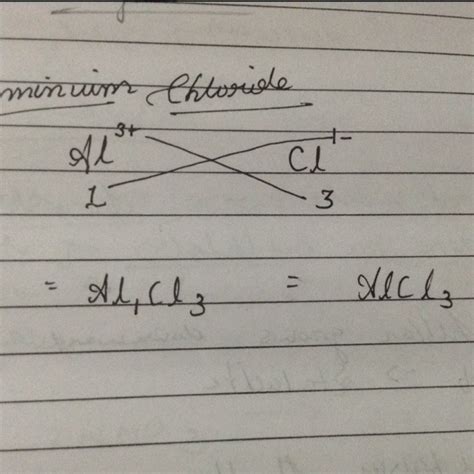 minium Chloride
Al³⁺ Cl¹⁻
1 3
= Al₁Cl₃ = AlCl₃